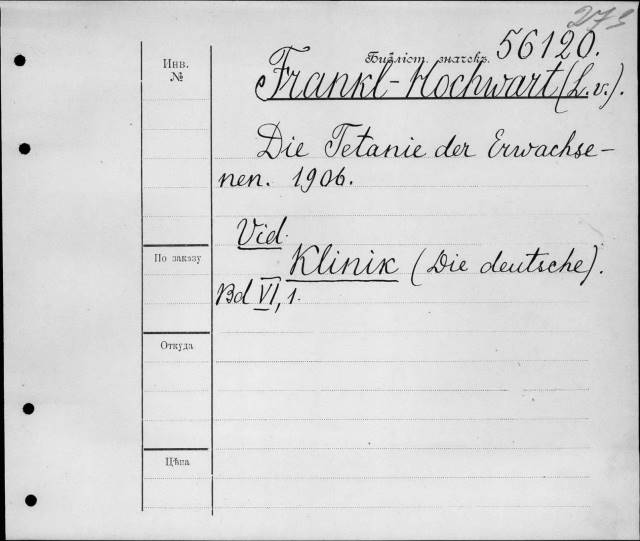 273
Библіот. значекъ. 56120.
Инв.
№
Frankl-Hochwart (L.v.).
Die Tetanie der Erwachse-
nen. 1906.
Vid.
По заказу
Klinik (Die deutsche).
Bd VI, 1.
Откуда
Цѣна